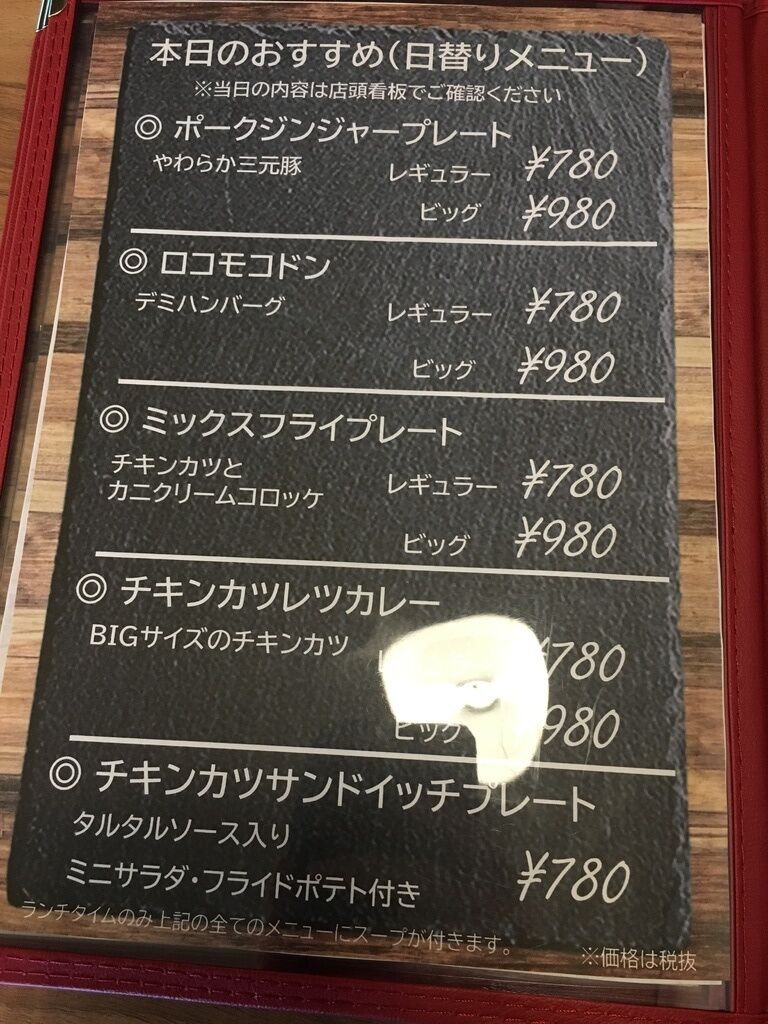 本日のおすすめ(日替りメニュー)
※当日の内容は店頭看板でご確認ください
◎ ポークジンジャープレート
やわらか三元豚 レギュラー ¥780
ビッグ ¥980
◎ ロコモコドン
デミハンバーグ レギュラー ¥780
ビッグ ¥980
◎ ミックスフライプレート
チキンカツと
カニクリームコロッケ レギュラー ¥780
ビッグ ¥980
◎ チキンカツレツカレー
BIGサイズのチキンカツ ¥780
ビッグ ¥980
◎ チキンカツサンドイッチプレート
タルタルソース入り
ミニサラダ・フライドポテト付き ¥780
ランチタイムのみ上記の全てのメニューにスープが付きます。
※価格は税抜